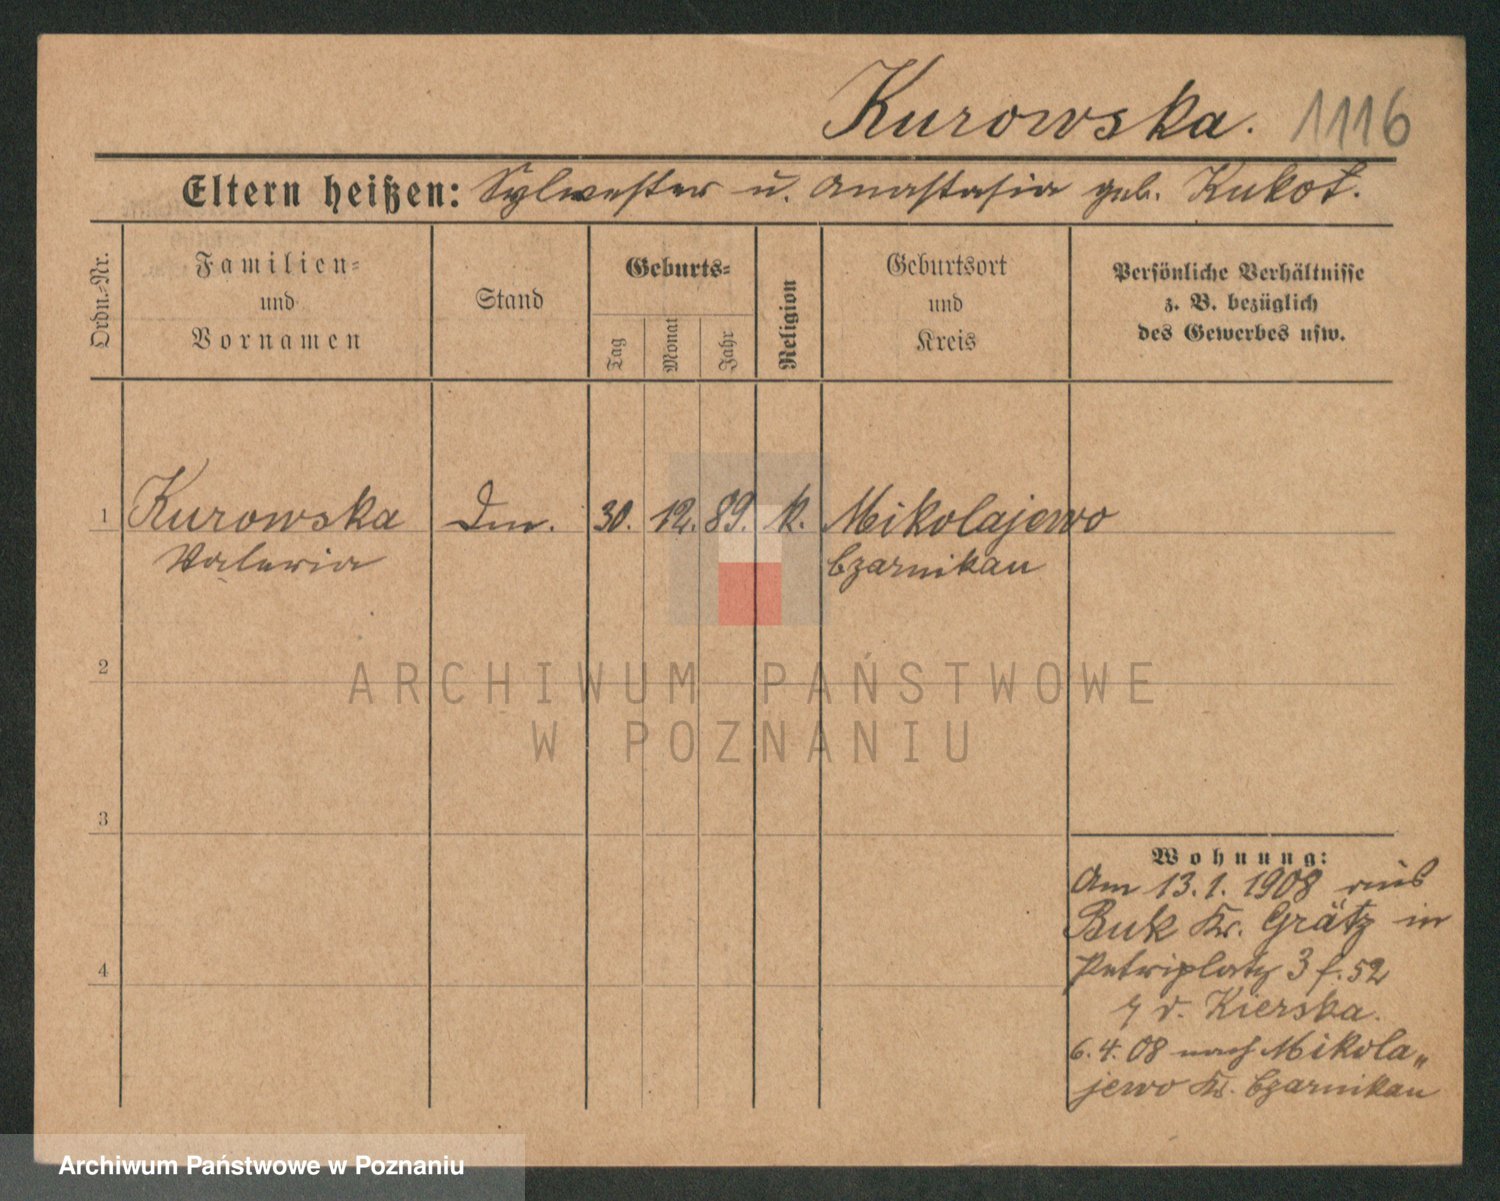 Kurowska. 1116
Eltern heißen: Sylwester u. Anastasia geb. Kukot.
Ordn.-Nr.
Familien-
und
Vornamen
Stand
Geburts-
Tag
Monat
Jahr
Religion
Geburtsort
und
Kreis
Persönliche Verhältnisse
z. B. bezüglich
des Gewerbes usw.
1 Kurowska 30. 12. 89. k. Mikolajewo
Valeria Czarnikau
2
3
4
Wohnung:
Am 13.1.1908 aus
Buk Kr. Grätz in
Petriplatz 3
Kierska.
6.4.08 nach Mikola„
jewo Kr. Czarnikau
ARCHIWUM PAŃSTWOWE
W POZNANIU
Archiwum Państwowe w Poznaniu